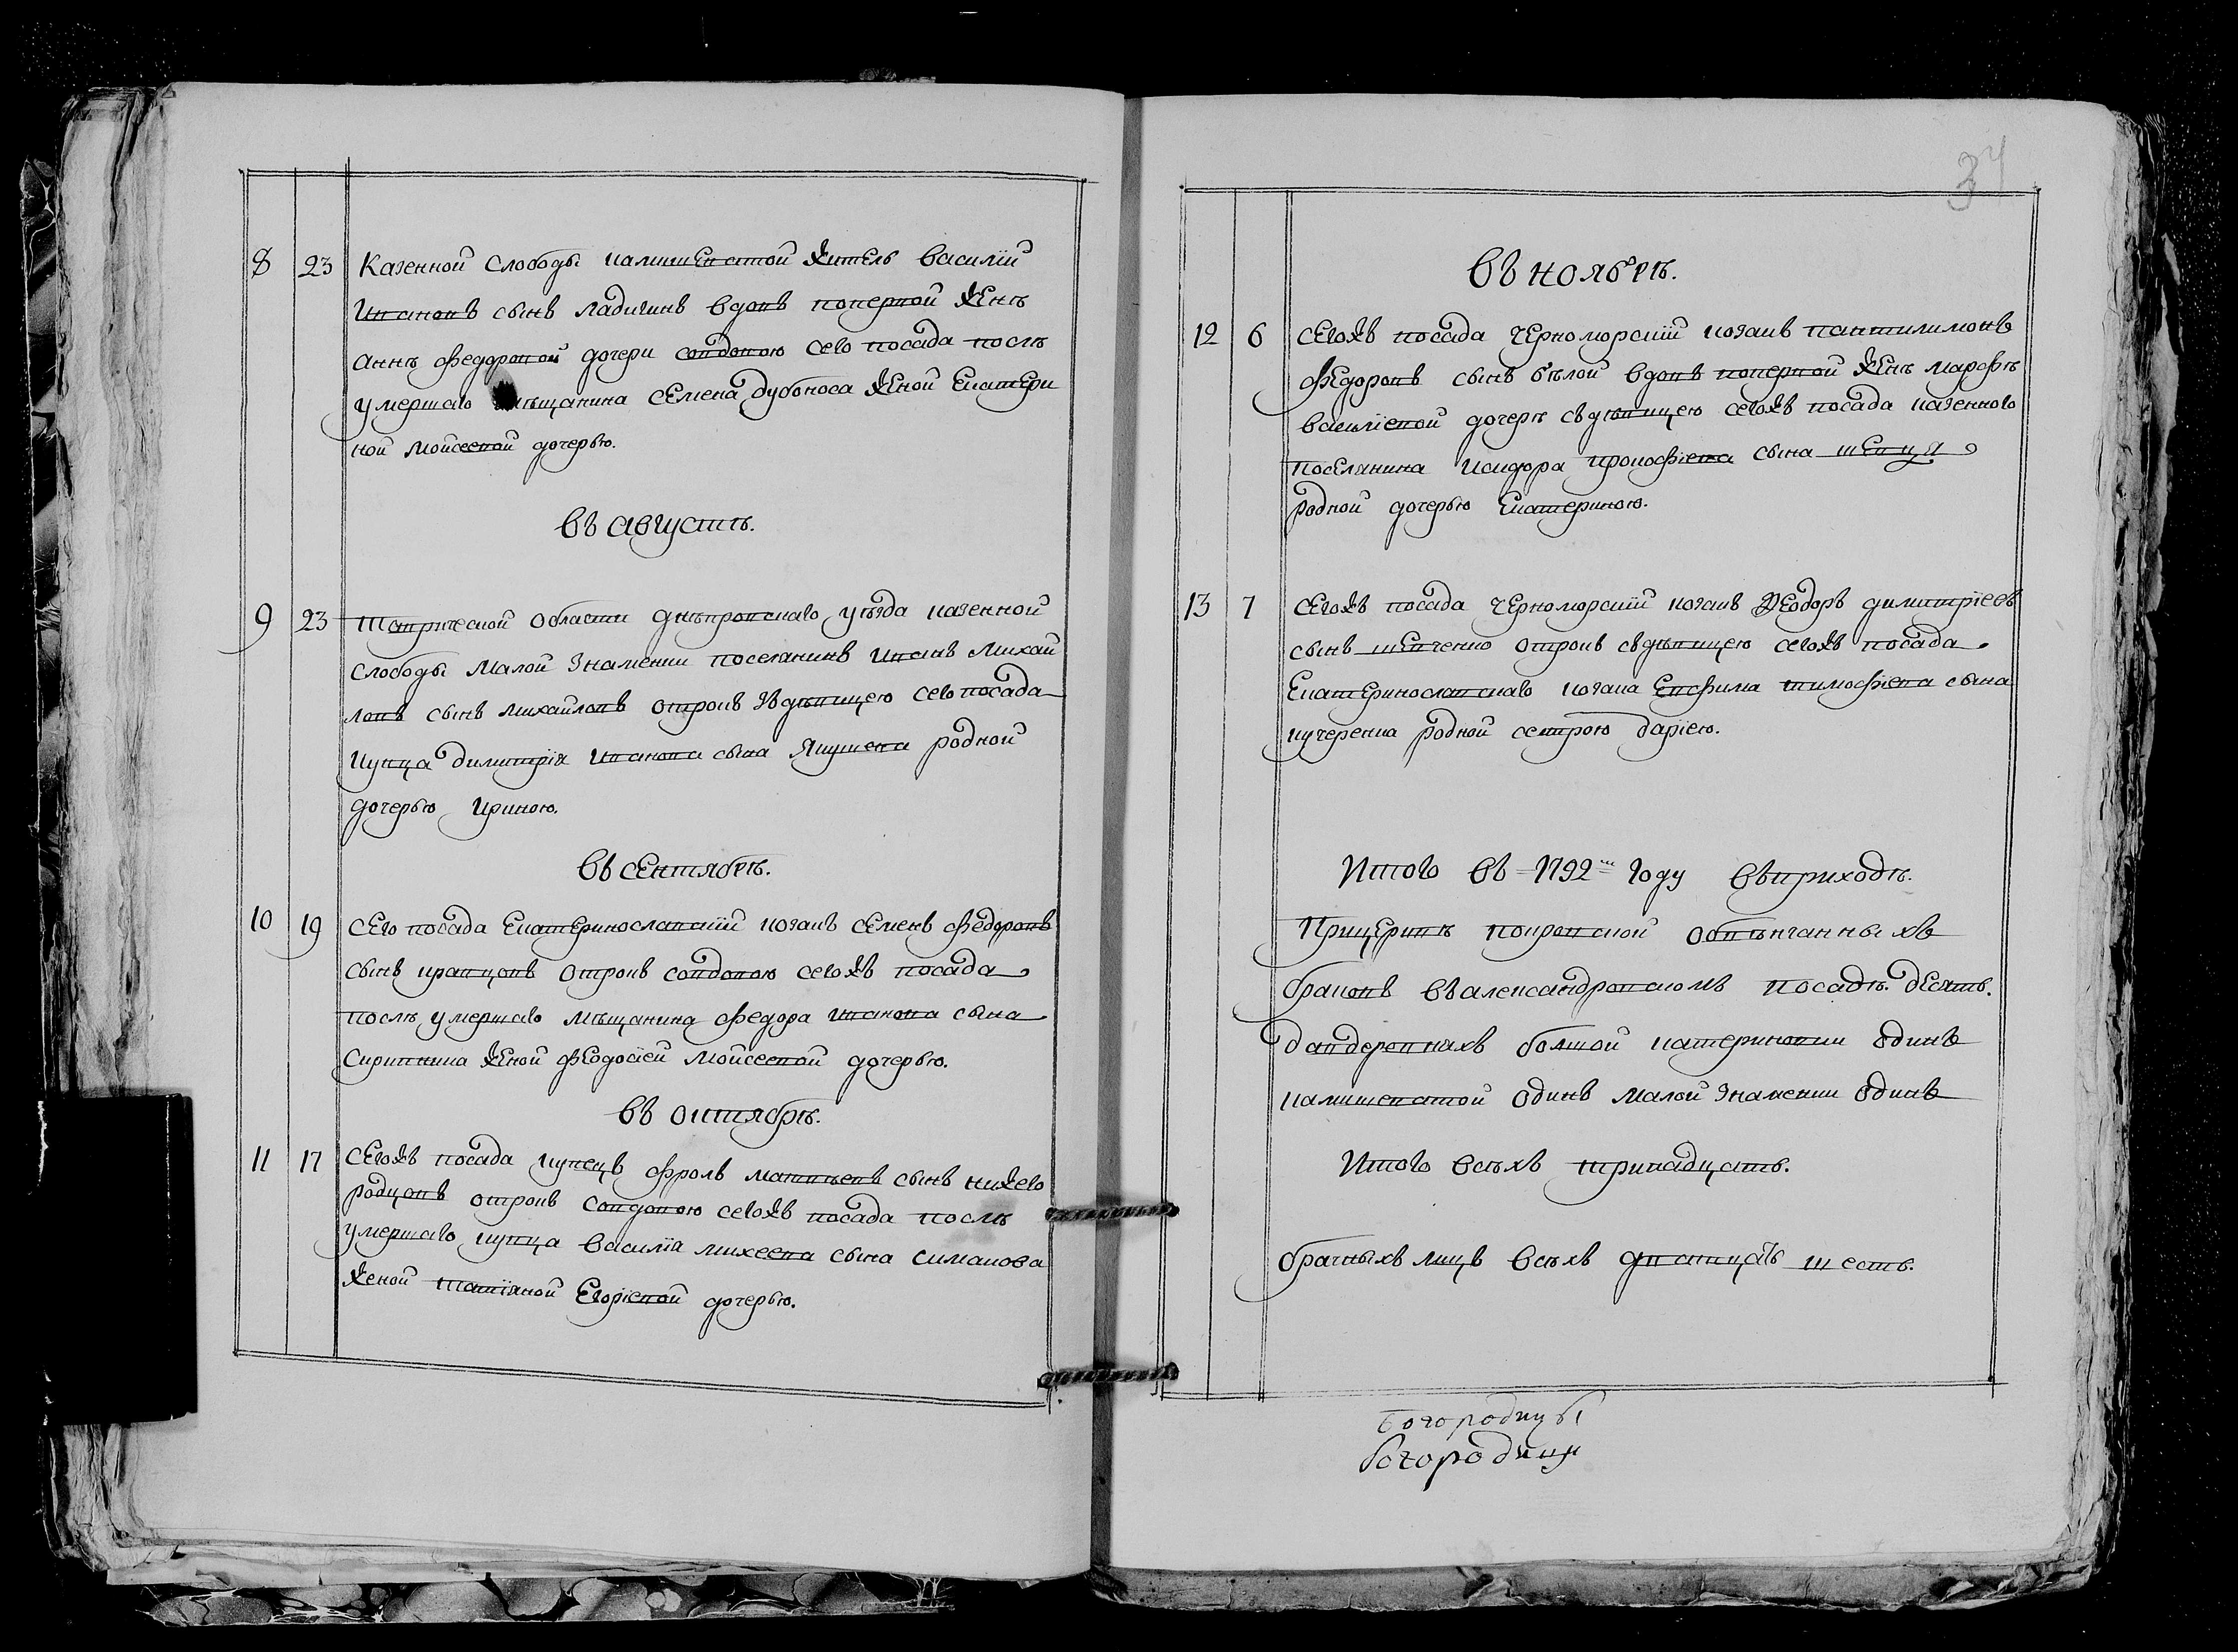 8 23 Казенной слободы камишеватой житель василий
Ивановъ сынъ ладигинъ вдовъ поперьвой женѣ
аннѣ федоровой дочери совдовою сего посада послѣ
умершаго мѣщанина семена дубоноса женой Екатери
ной мойсеевой дочерью.
въ августѣ.
9 23 Таврической области днѣпровскаго уѣзда казенной
слободы малой знаменки поселянинъ Иванъ михай
ловъ сынъ михайловъ отрокъ здѣвицею сего посада
купца димитрія Иванова сына якушева родной
дочерью Ириною.
въ сентябрѣ.
10 19 сего посада Екатеринославский козакъ семенъ федоровъ
сынъ кравцовъ отрокъ совдовою сегожъ посада
послѣ умершаго мѣщанина федора Иванова сына
скрипника женой феодосіей мойсеевой дочерью.
въ октябрѣ.
11 17 сегожъ посада купецъ фролъ матвѣевъ сынъ нижего
родцовъ отрокъ совдовою сегожъ посада послѣ
умершаго купца василія михеева сына симакова
женой татіяной Егоріевой дочерью.
34
въ ноябрѣ.
12 6 сегожъ посада черноморский козакъ пантилимонъ
федоровъ сынъ бѣлой вдовъ поперьвой женѣ марфѣ
василіевой дочерѣ сдѣвицею сегожъ посада казенного
поселянина исидора прокофіева сына шевця
родной дочерью Екатериною.
13 7 сегожъ посада черноморский козакъ феодоръ димитріевъ
сынъ шевченко отрокъ сдѣвицею сегожъ посада
Екатеринославскаго козака Евфима тимофіева сына
кучеренка родной сестрою даріею.
Итого въ 1792м году въприходѣ.
Прицерквѣ покровской обвѣнчанныхъ
браковъ въалександровскомъ посадѣ десять.
вдеревняхъ болшой катериновки одинъ
камишеватой одинъ малой знаменки одинъ
Итого всѣхъ тринадцать.
брачныхъ лицъ всѣхъ двадцать шесть.
Богородицы
богородици